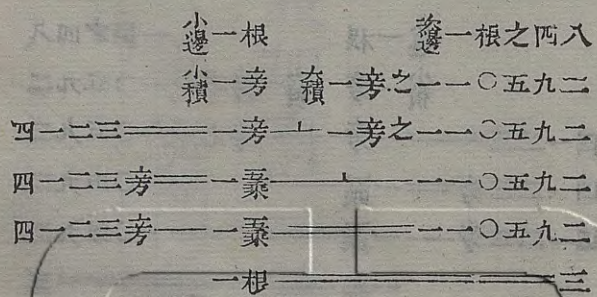 小邊一根 次邊一根之四八
小積一立方 次積一立方之一一〇五九二
四一二三══一立方⊥一立方之一一〇五九二
四一二三立方══一五乘⊥一一〇五九二
四一二三立方─一五乘══一一〇五九二
一根══三